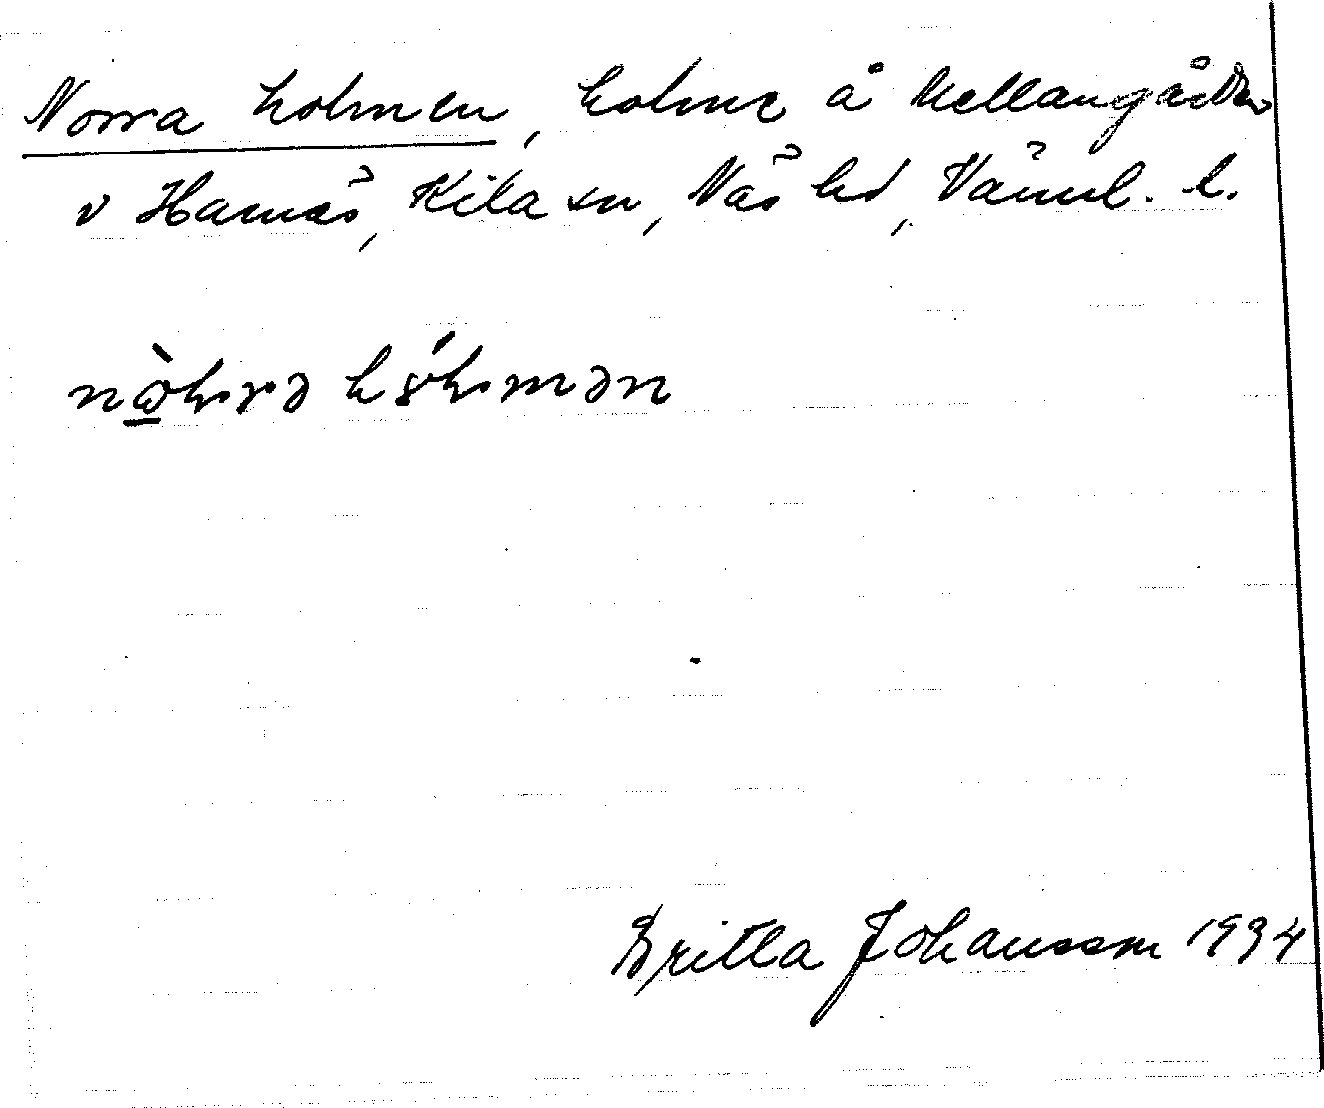 Norra holmen, holme å Mellangården
v Harnäs, Kila sn, Näs hd, Värml. l.
Britta Johansson 1934